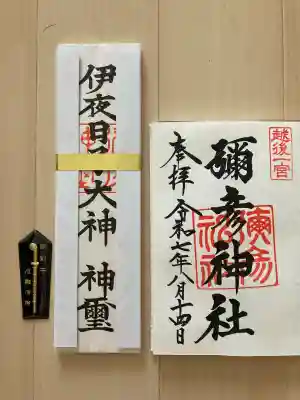 越後一宮
彌彦神社
奉拝 令和七年八月十四日
伊夜日子大神 神璽